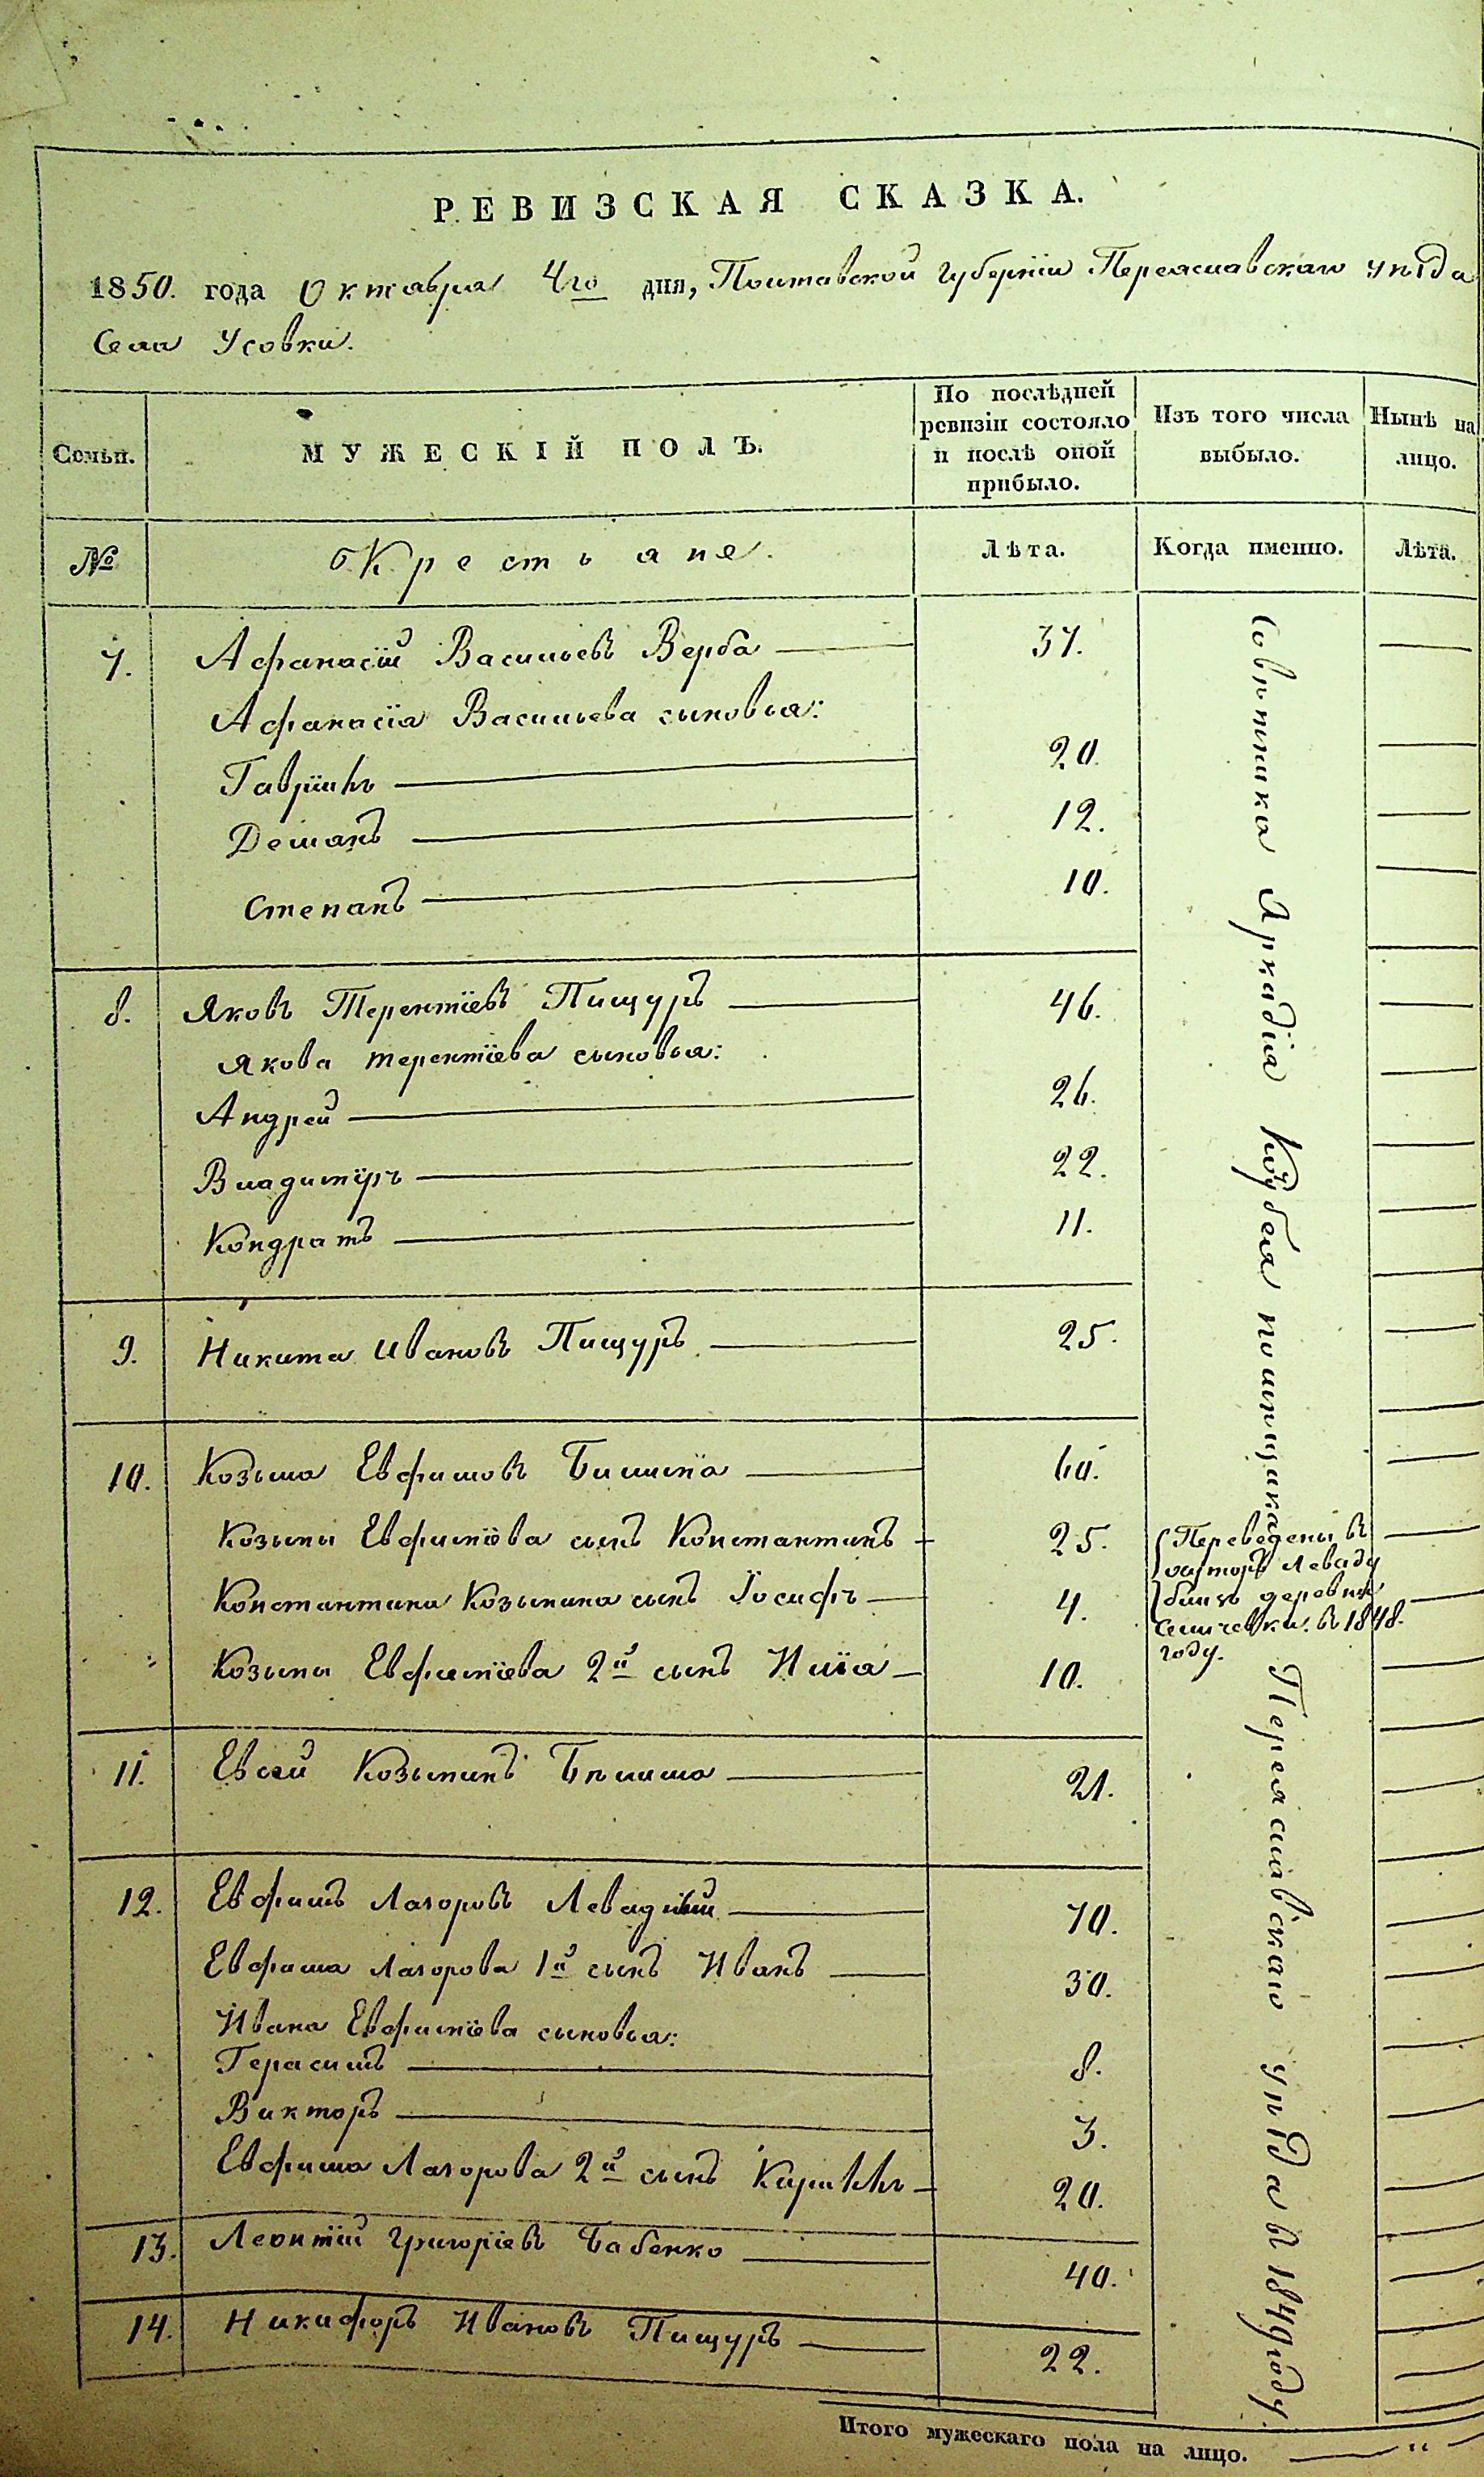 РЕВИЗСКАЯ СКАЗКА.
1850. года Октября 4го дня, Полтавской губерніи Переяславскаго уѣзда
Села Усовки.
Семьи.
МУЖЕСКІЙ ПОЛЪ.
По послѣдней
ревизіи состояло
и послѣ оной
прибыло.
Изъ того числа
выбыло.
Нынѣ на
лицо.
№
Крестьяне.
Лѣта.
Когда именно.
Лѣта.
7. Афанасій Васильевъ Верба 37.
Афанасія Васильева сыновья:
Гавріилъ 20.
Демянъ 12.
Степанъ 10.
8. Яковъ Терентіевъ Пищуръ 46.
Якова Терентіева сыновья:
Андрей 26.
Владиміръ 22.
Кондратъ 11.
9. Никита Ивановъ Пищуръ 25.
10. Козьма Евфимовъ 60.
Козьмы Евфиміева сынъ Константинъ 25.
Константина Козьмина сынъ Іосифъ 4.
Козьмы Евфиміева 2й сынъ Илія 10.
Переведены въ
хуторъ Леваду
близъ деревни
въ 1848.
году.
11. Евсей Козьминъ 21.
12. Евфимъ Лазоровъ Левадній 70.
Евфима Лазорова 1й сынъ Иванъ 30.
Ивана Евфиміева сыновья:
Герасимъ 8.
Викторъ 3.
Евфима Лазорова 2й сынъ Кириллъ 20.
13. Леонтій Григоріевъ Бабенко 40.
14. Никифоръ Ивановъ Пищуръ 22.
Совѣтника Аркадія Кочубея помѣщика Переяславскаго уѣзда въ 1849 году.
Итого мужескаго пола на лицо. "